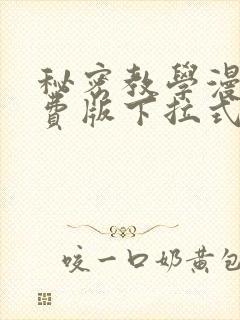 秘密教學漫
費版下拉式
咬一口奶黃包